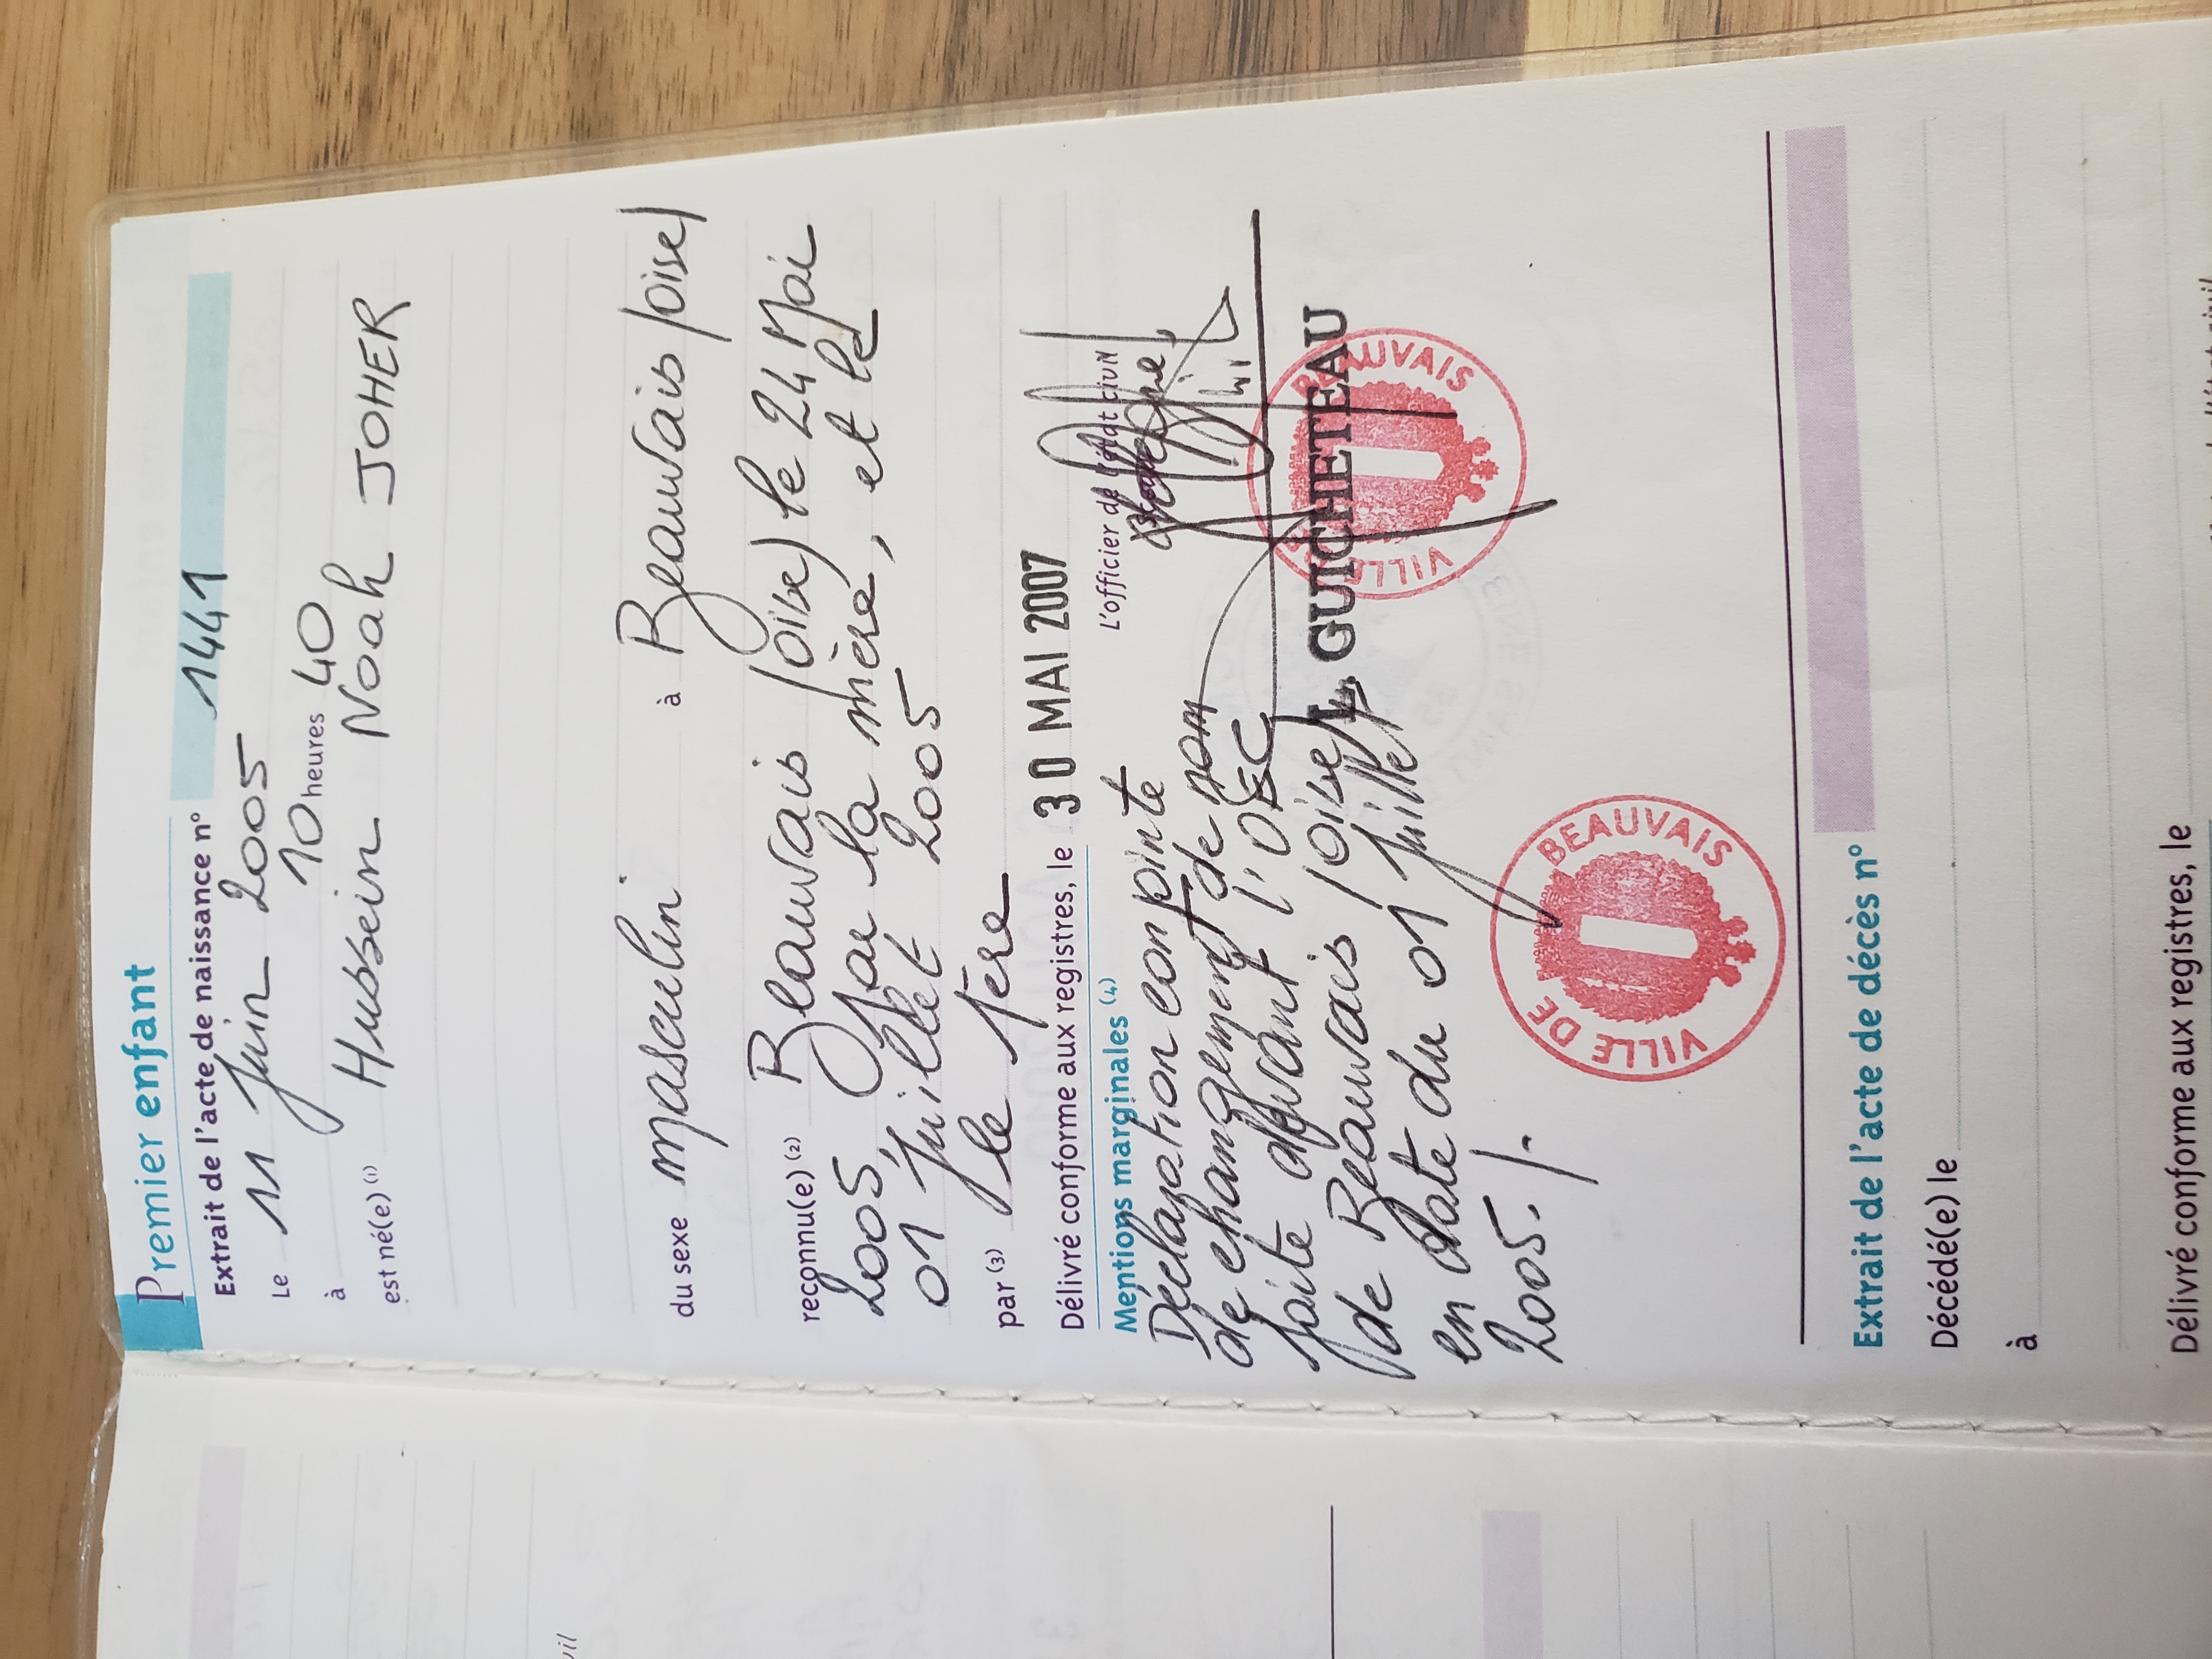 Premier enfant
Extrait de l'acte de naissance n° 1441
Le 11 juin 2005
à 10 heures 40
est né(e) (1) Hussein Noah JOHER
du sexe masculin à Beauvais (oise)
reconnu(e) (2) Beauvais (oise) le 24 Mai
2005, par la mère, et le
01 juillet 2005
par (3) le 1ère
Délivré conforme aux registres, le 30 MAI 2007
Mentions marginales (4)
L'officier de l'état civil
Déclaration conjointe
de changement de nom
faite devant l'OEC
de Beauvais (oise)
en date du 01 juillet
2005. /.
L. GUICHETEAU
VILLE DE BEAUVAIS
VILLE DE BEAUVAIS
Extrait de l'acte de décès n°
Décédé(e) le
à
Délivré conforme aux registres, le